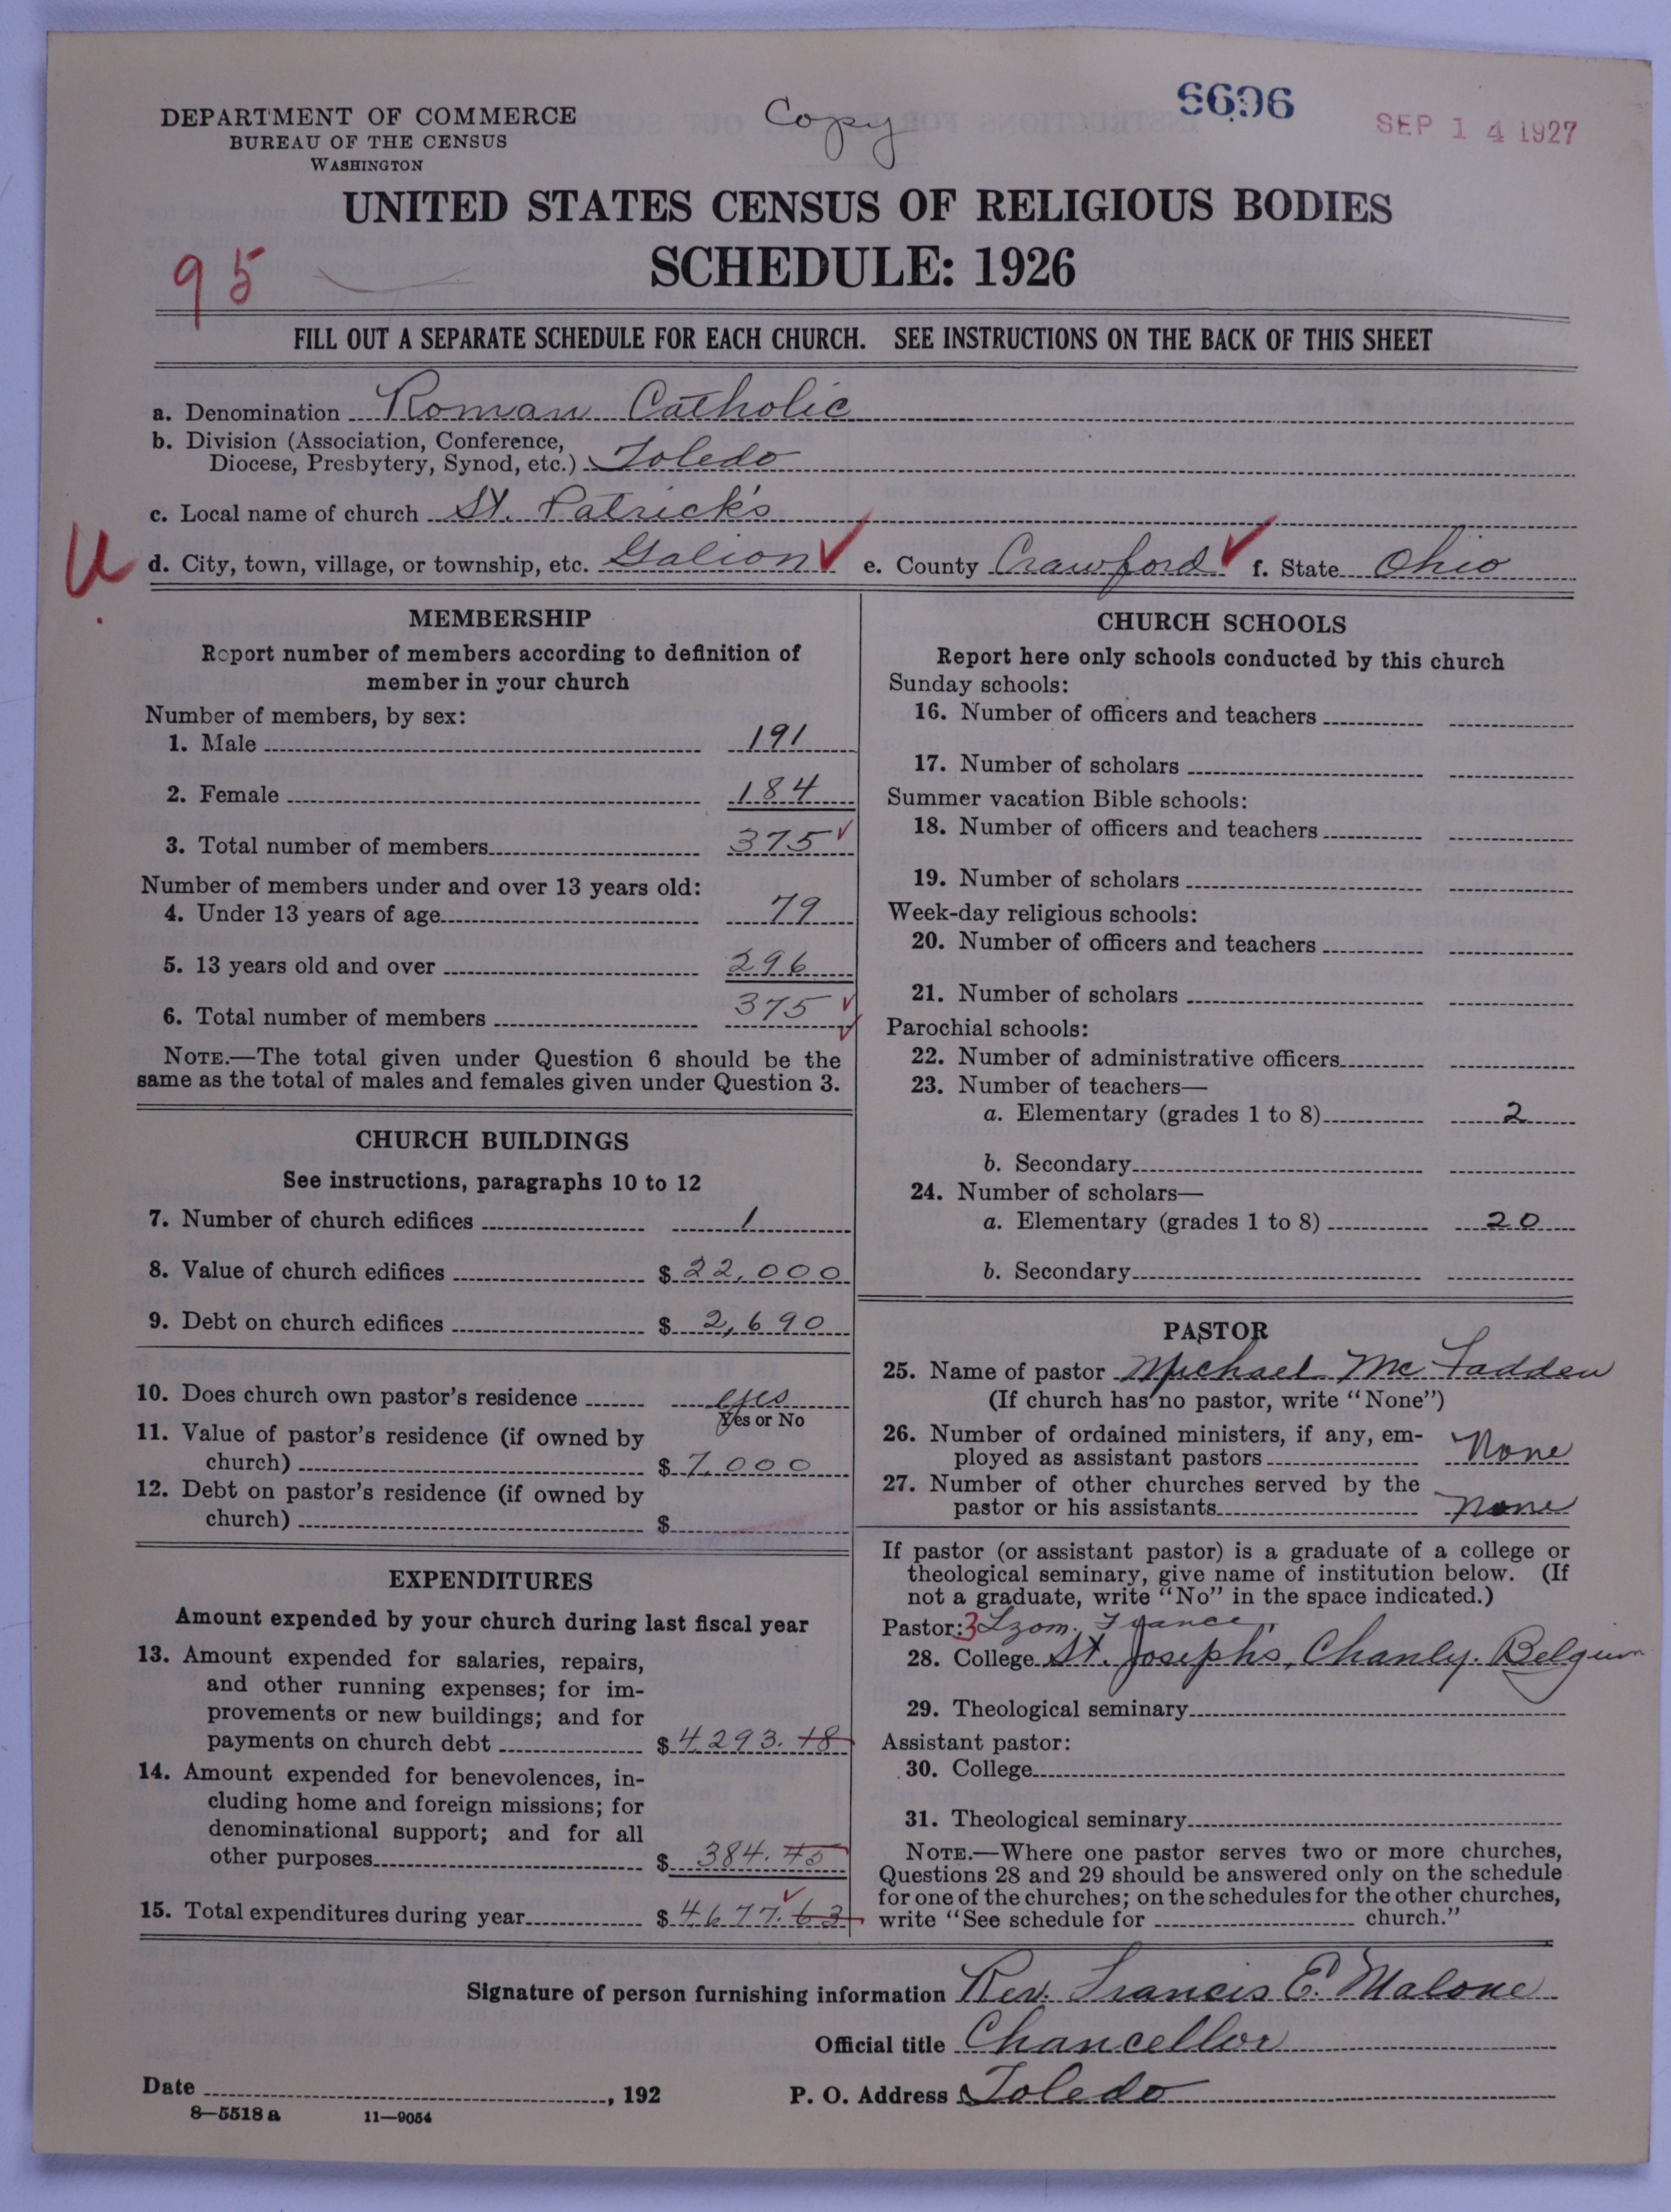 DEPARTMENT OF COMMERCE
BUREAU OF THE CENSUS
WASHINGTON
Copy
6696
SEP 14 1927
UNITED STATES CENSUS OF RELIGIOUS BODIES
SCHEDULE: 1926
95
FILL OUT A SEPARATE SCHEDULE FOR EACH CHURCH. SEE INSTRUCTIONS ON THE BACK OF THIS SHEET
a. Denomination Roman Catholic
b. Division (Association, Conference,
Diocese, Presbytery, Synod, etc.) Toledo
c. Local name of church St. Patrick's
U d. City, town, village, or township, etc. Galion e. County Crawford f. State Ohio
MEMBERSHIP
Report number of members according to definition of
member in your church
Number of members, by sex:
1. Male 191
2. Female 184
3. Total number of members 375
Number of members under and over 13 years old:
4. Under 13 years of age 79
5. 13 years old and over 296
6. Total number of members 375
NOTE.—The total given under Question 6 should be the
same as the total of males and females given under Question 3.
CHURCH BUILDINGS
See instructions, paragraphs 10 to 12
7. Number of church edifices 1
8. Value of church edifices $ 22,000
9. Debt on church edifices $ 2,690
10. Does church own pastor's residence yes
Yes or No
11. Value of pastor's residence (if owned by
church) $ 7,000
12. Debt on pastor's residence (if owned by
church) $
EXPENDITURES
Amount expended by your church during last fiscal year
13. Amount expended for salaries, repairs,
and other running expenses; for im-
provements or new buildings; and for
payments on church debt $ 4293.18
14. Amount expended for benevolences, in-
cluding home and foreign missions; for
denominational support; and for all
other purposes $ 384.45
15. Total expenditures during year $ 4677.63
CHURCH SCHOOLS
Report here only schools conducted by this church
Sunday schools:
16. Number of officers and teachers
17. Number of scholars
Summer vacation Bible schools:
18. Number of officers and teachers
19. Number of scholars
Week-day religious schools:
20. Number of officers and teachers
21. Number of scholars
Parochial schools:
22. Number of administrative officers
23. Number of teachers—
a. Elementary (grades 1 to 8) 2
b. Secondary
24. Number of scholars—
a. Elementary (grades 1 to 8) 20
b. Secondary
PASTOR
25. Name of pastor Michael McFadden
(If church has no pastor, write "None")
26. Number of ordained ministers, if any, em-
ployed as assistant pastors None
27. Number of other churches served by the
pastor or his assistants none
If pastor (or assistant pastor) is a graduate of a college or
theological seminary, give name of institution below. (If
not a graduate, write "No" in the space indicated.)
Pastor: 3 France,
28. College St. Josephs, Chanly. Belgium
29. Theological seminary
Assistant pastor:
30. College
31. Theological seminary
NOTE.—Where one pastor serves two or more churches,
Questions 28 and 29 should be answered only on the schedule
for one of the churches; on the schedules for the other churches,
write "See schedule for church."
Signature of person furnishing information Rev. Francis E. Malone
Official title Chancellor
Date , 192 P. O. Address Toledo
8—5518 a 11—9054